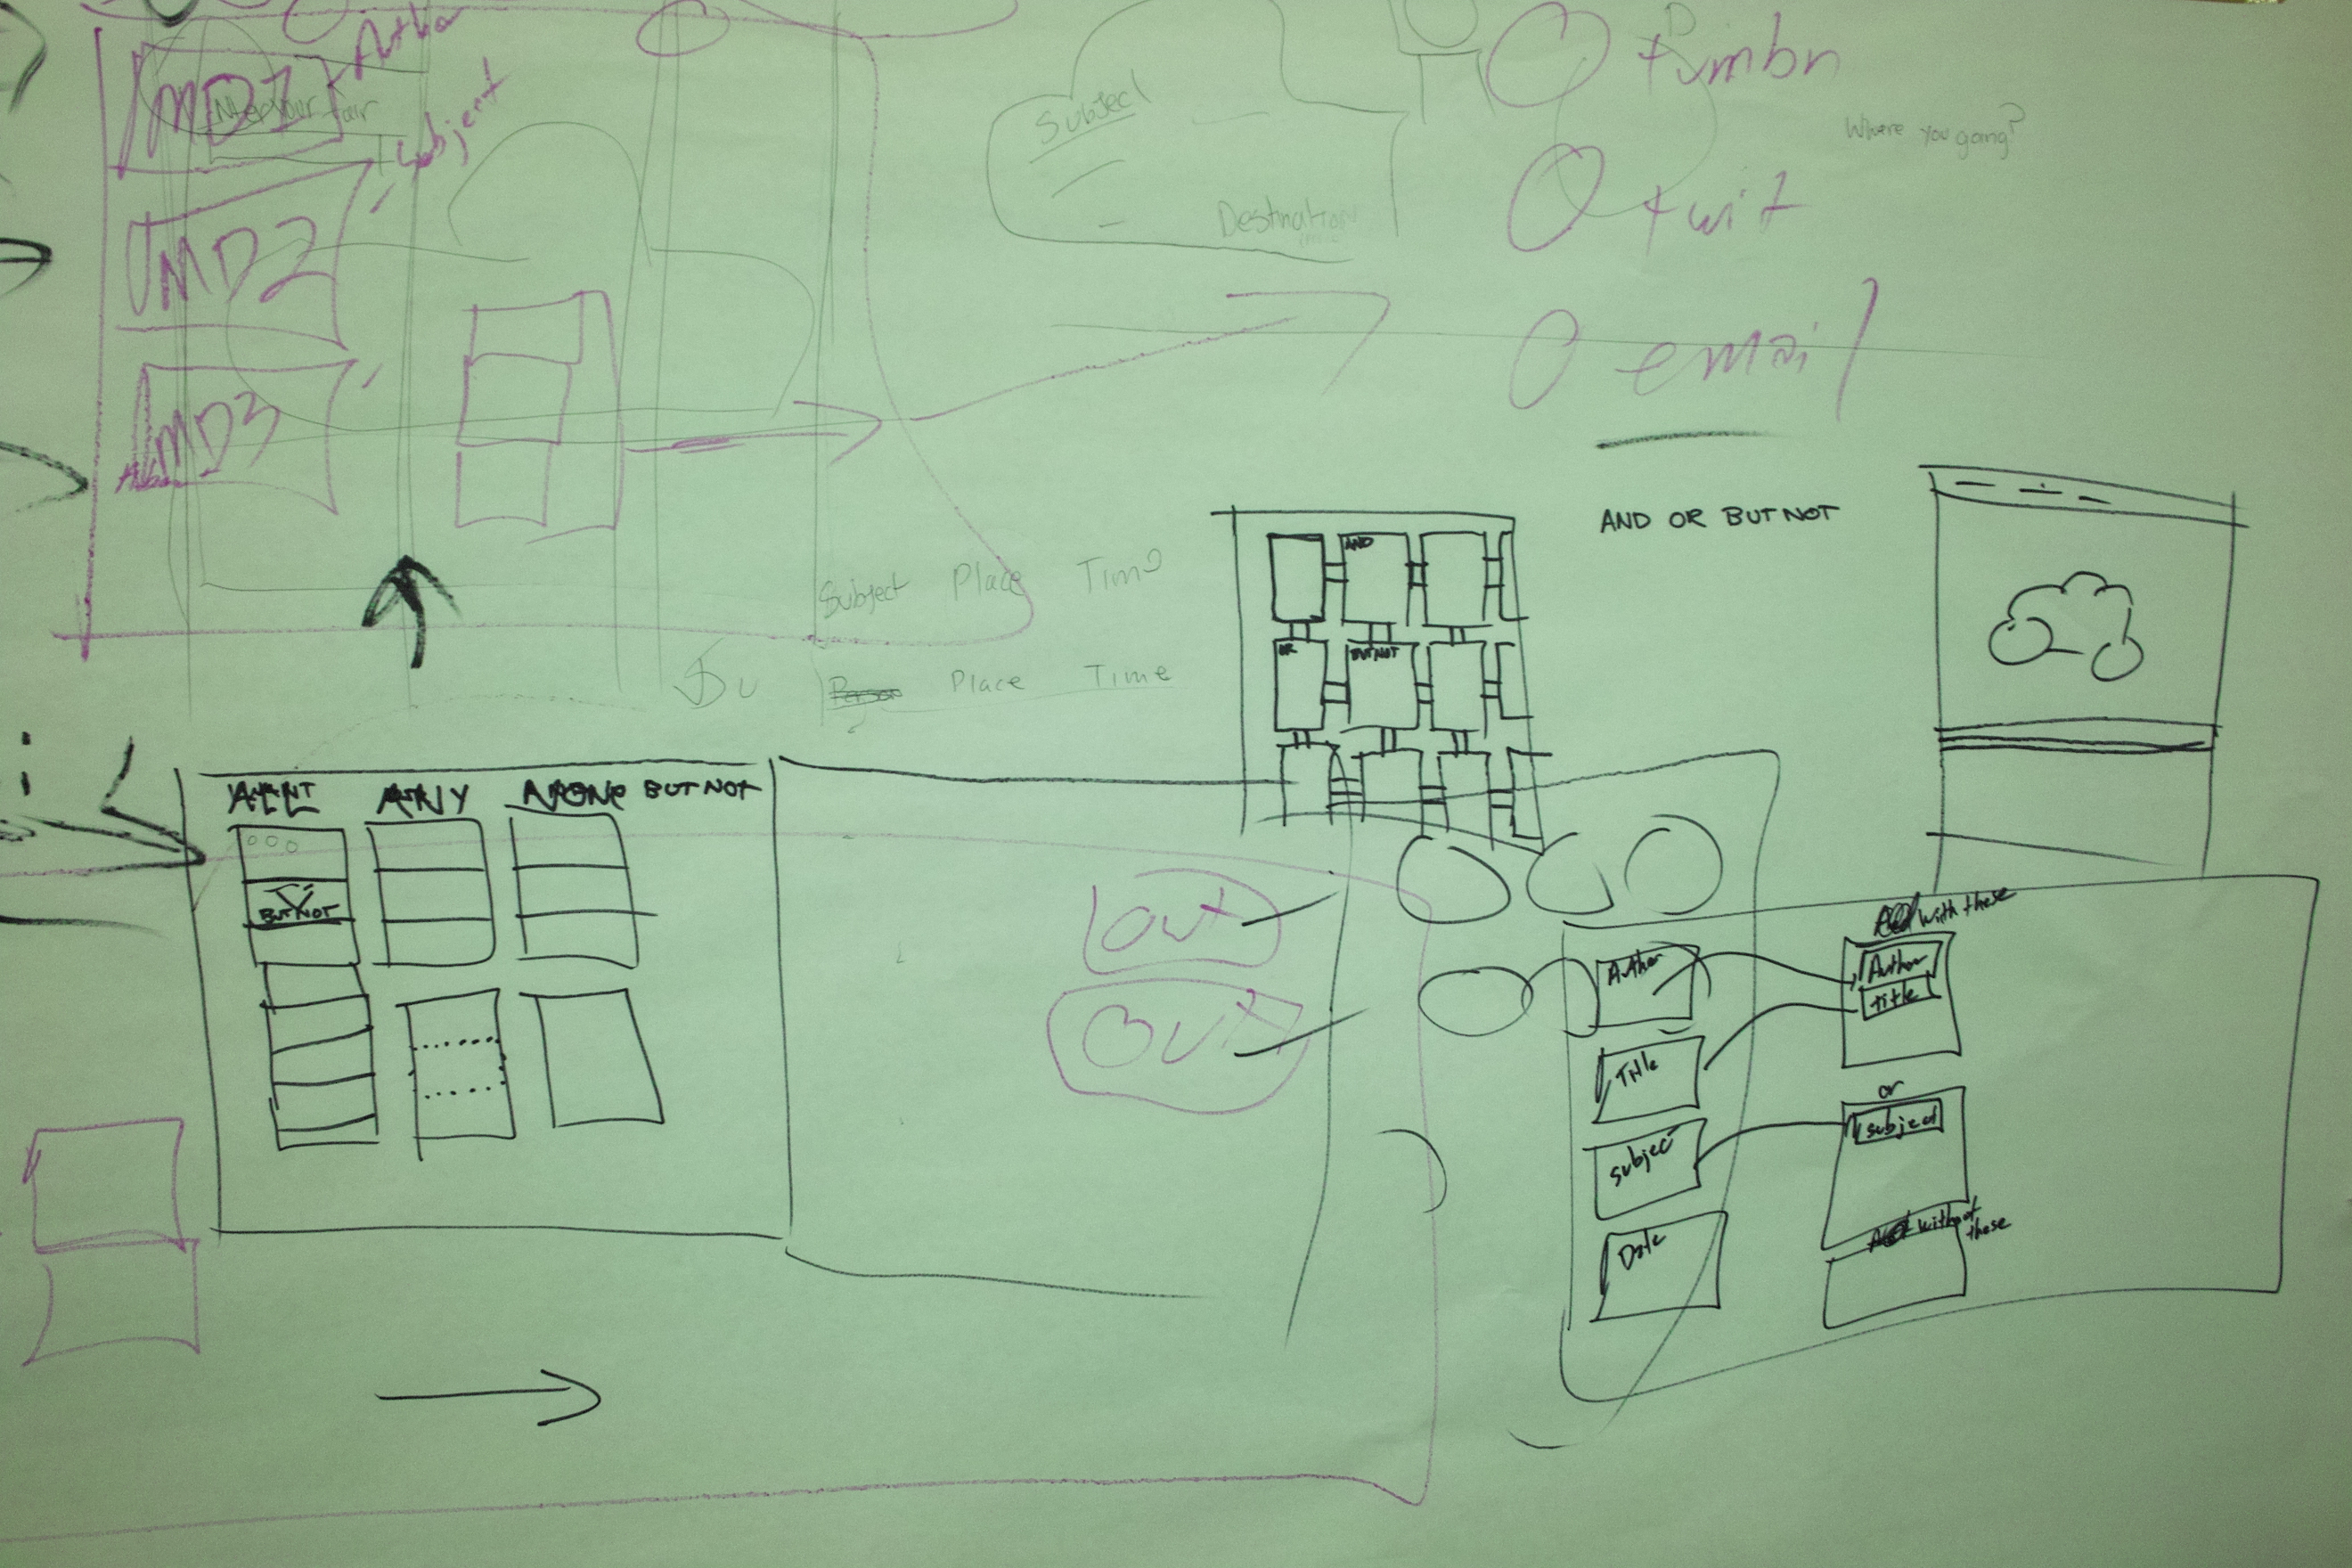 Author
MD1
Need your fair
Subject
MD2
MD3
Subject
Destination
tumbn
twit
email
Where you going?
Subject Place Time
Su Person Place Time
AND OR BUT NOT
AND
OR
BUT NOT
ALL ANY NONE BUT NOT
BUT NOT
OUT
OUT
Author
Title
Subject
Date
with these
Author
title
or
subject
without these